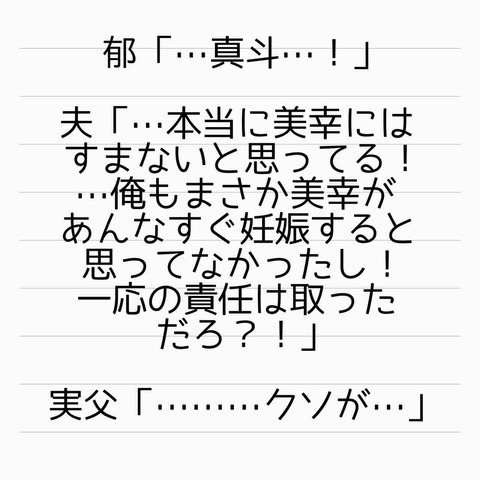 郁「…真斗…！」
夫「…本当に美幸には
すまないと思ってる！
…俺もまさか美幸が
あんなすぐ妊娠すると
思ってなかったし！
一応の責任は取った
だろ？！」
実父「………クソが…」